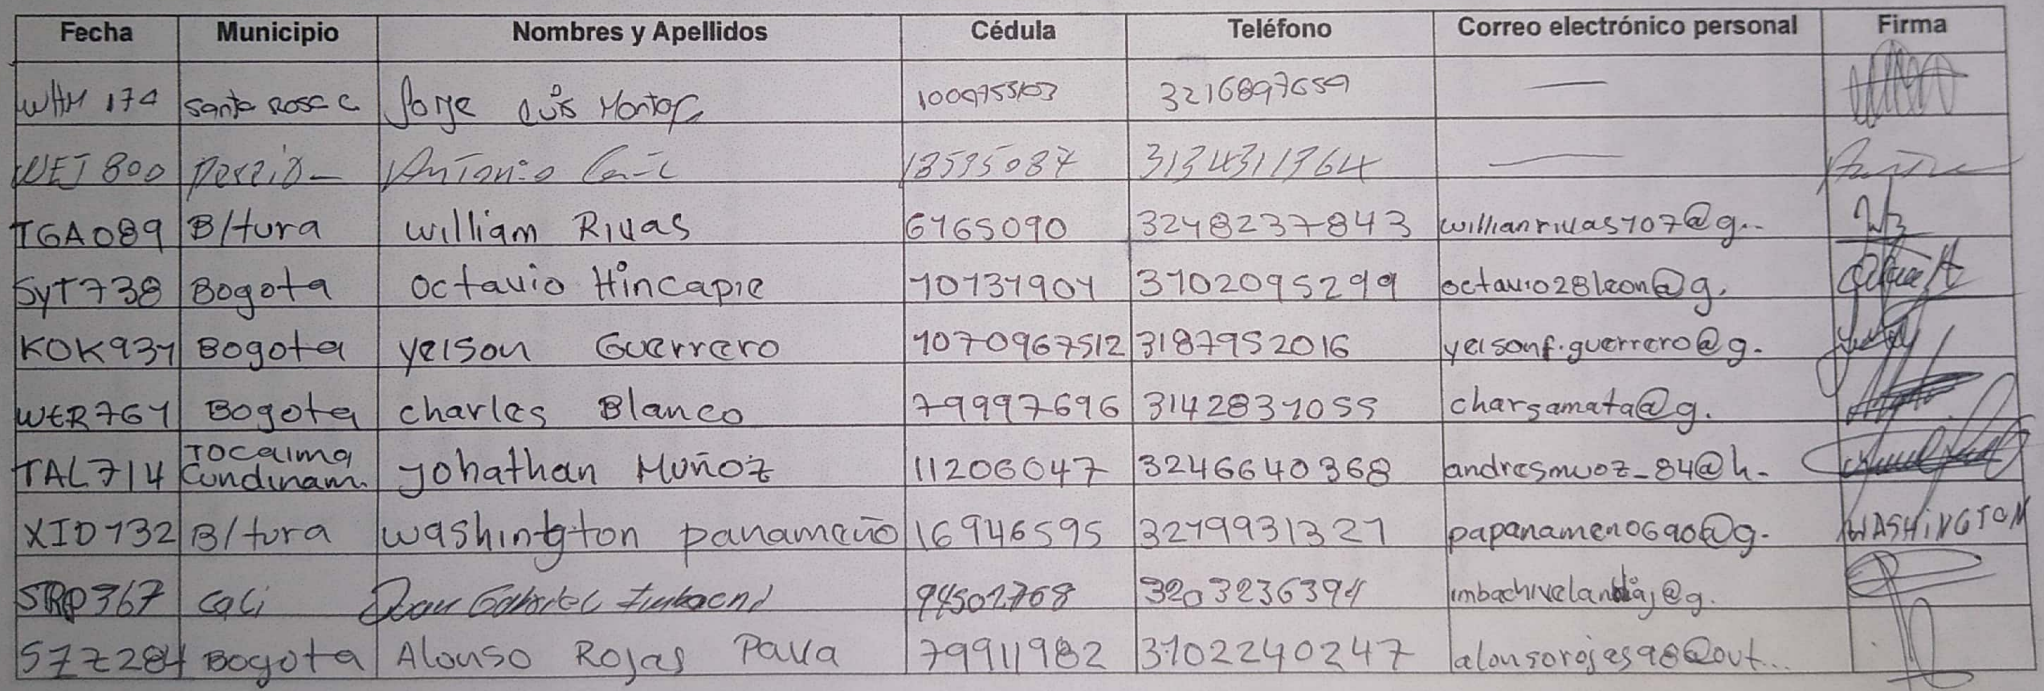 Fecha Municipio Nombres y Apellidos Cédula Teléfono Correo electrónico personal Firma
WHM 174 Santa Rosa C Jorge Luis Montoc 3216897659 —
WEJ 800 Antonio 13595087 3134311764 —
TGA089 B/tura William Rivas 6165090 3248237843 willianrivas107@g..
SYT738 Bogota Octavio Hincapie 10131901 3102095299 octavio28leon@g.
KOK931 Bogota yeison Guerrero 1070967512 3187952016 yeisonf.guerrero@g.
WER761 Bogota charles Blanco 79997696 3142831055 charsamata@g.
TAL714 Tocaima Cundinam. Johathan Muñoz 11206047 3246640368 andresmuoz_84@h-
XID132 B/tura washington panameño 16946595 3219931321 papanameno690@g. WASHINGTON
SRP367 Cali 94502768 3203236394 @g.
SZZ284 Bogota Alonso Rojas Pava 79911982 3102240247 alonsorojas98@out...